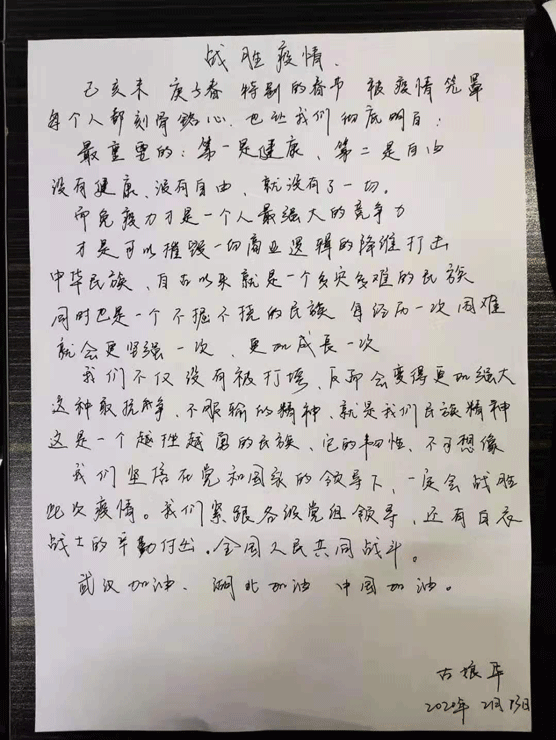 战胜疫情.
己亥末 庚子春 特别的春节 被疫情笼罩
每个人都刻骨铭心. 也让我们彻底明白:
最重要的: 第一是健康、第二是自由
没有健康、没有自由、就没有了一切.
而免疫力才是一个人最强大的竞争力
才是可以摧毁一切商业逻辑的降维打击
中华民族、自古以来就是一个多灾多难的民族
同时也是一个不掘不挠的民族 每经历一次困难
就会更坚强一次、更加成長一次
我们不仅没有被打垮、反而会变得更加强大
这种敢抗争、不服输的精神、就是我们民族精神
这是一个越挫越勇的民族、它的韧性、不可想像
我们坚信在党和国家的领导下、一定会战胜
此次疫情。我们紧跟各级党组领导、还有白衣
战士的辛勤付出.全国人民共同战斗。
武汉加油. 湖北加油 中国加油。
2020年2月13日